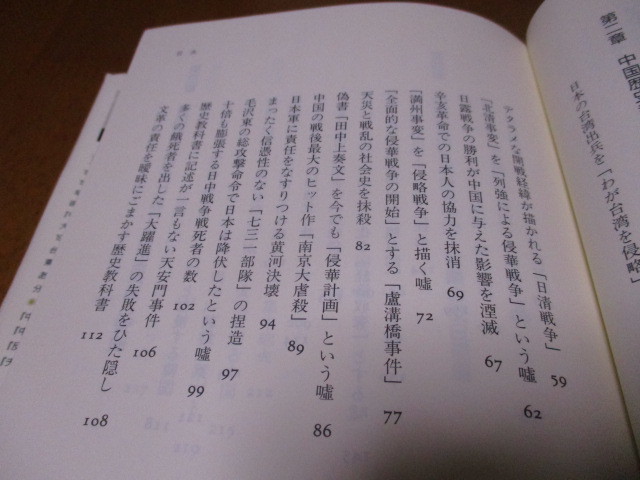 第二章 中国歴史
日本の台湾出兵を「わが台湾を侵略」
デタラメな開戦経緯が描かれる「日清戦争」 59
「北清事変」を「列強による侵華戦争」という嘘 62
日露戦争の勝利が中国に与えた影響を湮滅 67
辛亥革命での日本人の協力を抹消 69
「満州事変」を「侵略戦争」と描く嘘 72
「全面的な侵華戦争の開始」とする「盧溝橋事件」 77
天災と戦乱の社会史を抹殺 82
偽書「田中上奏文」を今でも「侵華計画」という嘘 86
中国の戦後最大のヒット作「南京大虐殺」 89
日本軍に責任をなすりつける黄河決壊 94
まったく信憑性のない「七三一部隊」の捏造 97
毛沢東の総攻撃命令で日本は降伏したという嘘 99
十倍も膨張する日中戦争戦死者の数 102
歴史教科書に記述が一言もない天安門事件 106
多くの餓死者を出した「大躍進」の失敗をひた隠し 108
文革の責任を曖昧にごまかす歴史教科書 112